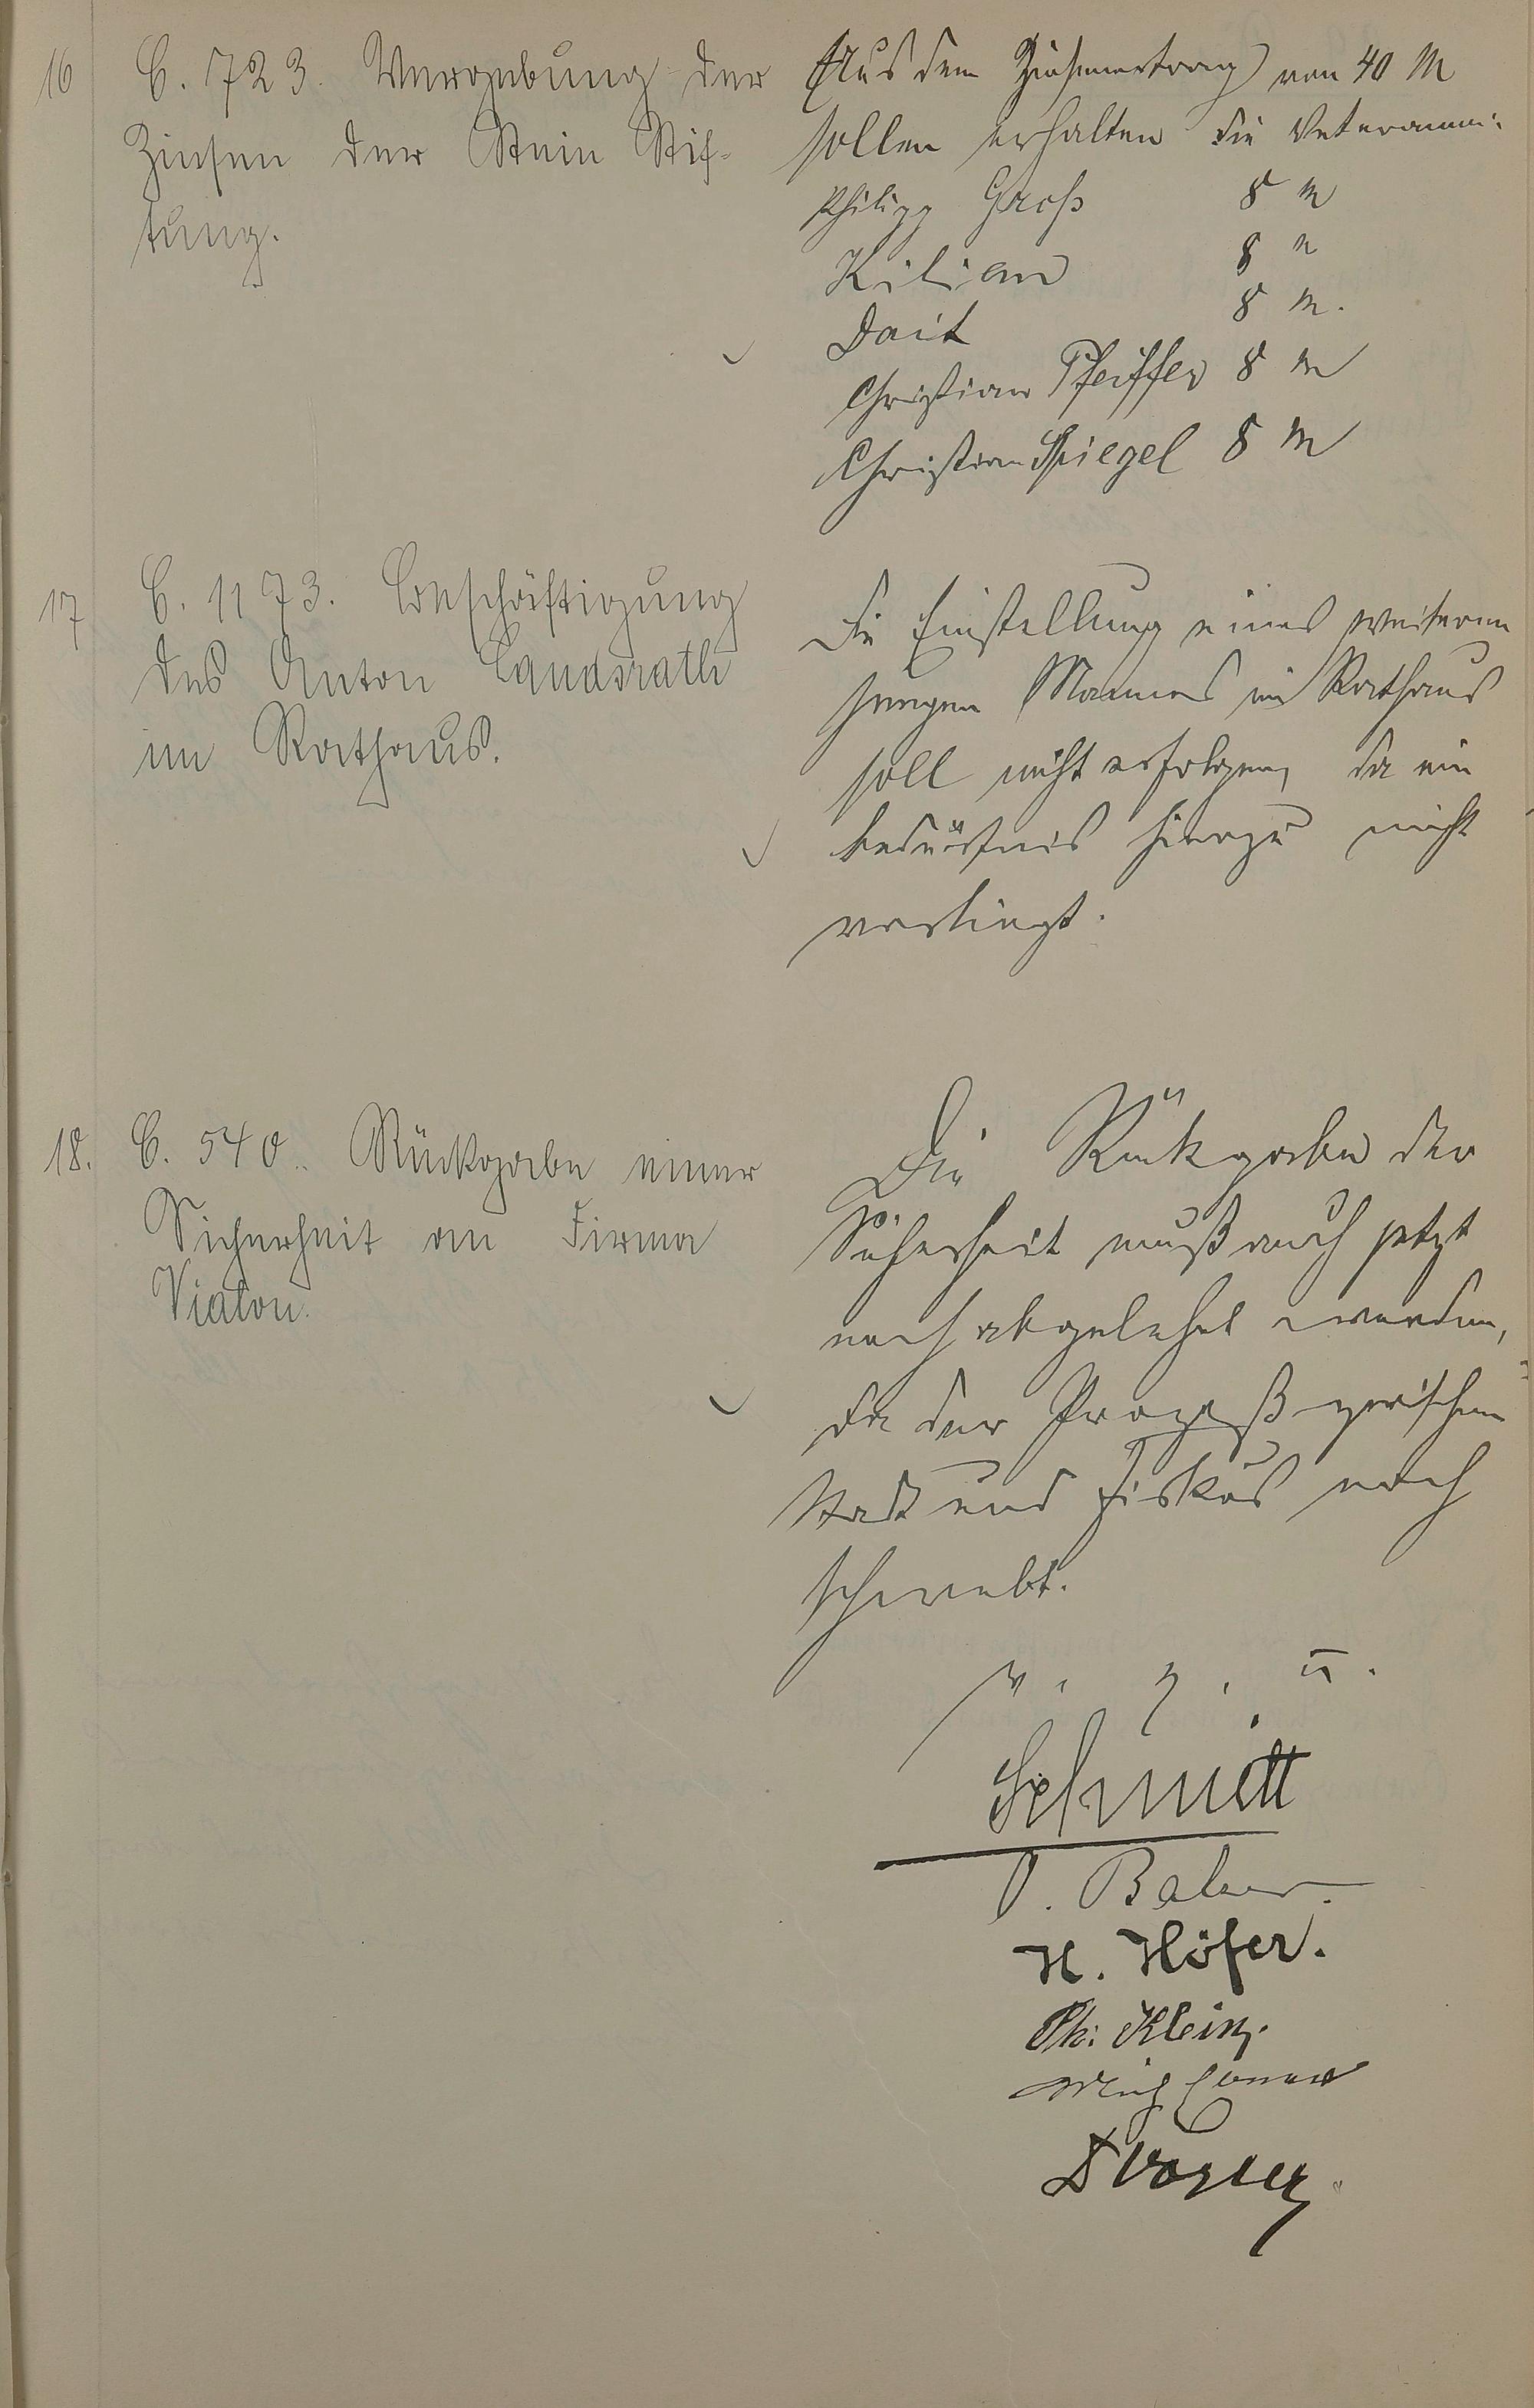 16
C. 723. Vergebung der
Zinsen der Stein Stif-
tung.
Aus dem Zinsenertrag von 40 M
sollen erhalten die Veteranen:
Philipp Groß 8 M
Kilian 8 "
Dait 8 M.
Christian Pfeiffer 8 M
Christian Spiegel 8 M
17
C. 1173. Beschäftigung
des Anton Landsrath
im Rathaus.
Die Einstellung eines weiteren
jungen Mannes im Rathaus
soll nicht erfolgen, da ein
bedürfnis hierzu nicht
vorliegt.
18.
C. 540. Rückgabe einer
Sicherheit an Firma
Viaton.
Die Rückgabe der
Sicherheit muß auch jetzt
noch abgelehnt werden,
da der Prozeß zwischen
Stadt und Fiskus noch
schwebt.
v. g. u.
Schmitt
H. Höfer.
Ph. Klein.